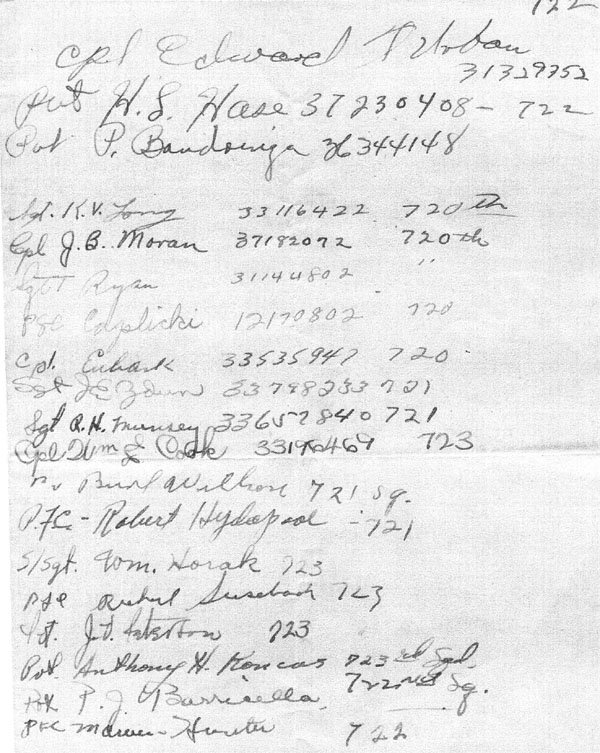 722
Cpl Edward F Urban
31329752
Pvt H.L. Hase 37230408 - 722
Pvt P. Bandringa 36344148
Sgt. K.V. Long 33116422 720th
Cpl J.B. Moran 37182072 720th
Sgt Ryan 31144802 "
Pfc 12170802 720
Cpl. Eubank 33535947 720
Sgt 33798233 721
Sgt R.H. Munsey 33657840 721
Cpl Wm J Cook 33196469 723
721 Sq.
P.F.C. - Robert - 721
S/Sgt. Wm. Horak 723
Pfc 723
Sgt. J.D. 723
Pvt. Anthony H. Koncas 723rd Sqd.
Pvt P. J. Barricella 722nd Sq.
PFC Hunter 722